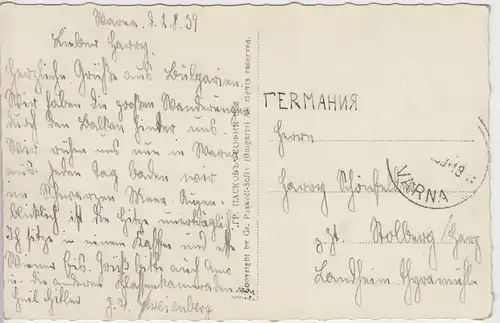 Warna, d. 2.8.39
Lieber Harry.
Herzliche Grüße aus Bulgarien.
Wir haben die großen Wanderungen
durch den Balkan hinter uns.
Wir ruhen uns nun in Warna
aus. Jeden Tag baden wir
im Schwarzen Meer. Augen-
blicklich ist die Hitze unerträglich.
Ich sitze in einem Kaffee und esse
Wiener Eis. Grüß bitte auch
u. die anderen Klassenkameraden
Heil Hitler
ГР. ПАСКОВЪ СОФИЯ
Copyright by Gr. Paskoff-Sofia (Bulgarie) All rights reserved.
ГЕРМАНИЯ
Herrn
Harry
VARNA
z. Zt. Stolberg/Harz
Landheim